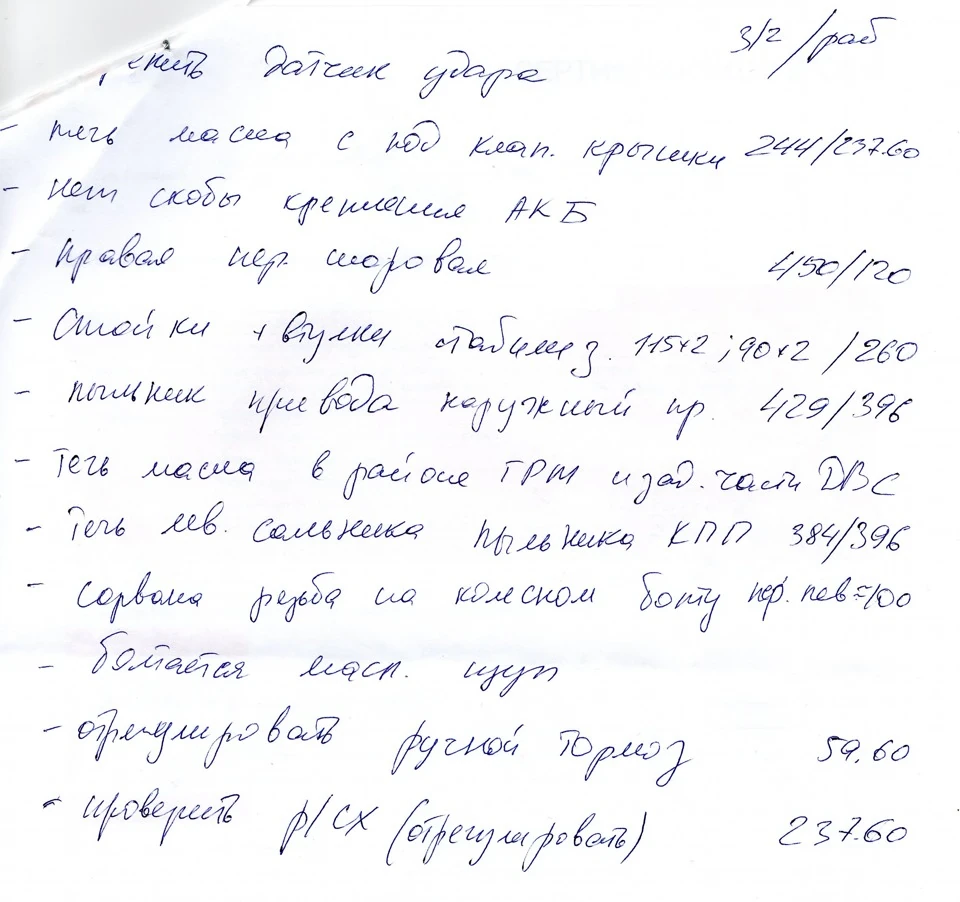 з/ч /раб
датчик удара
- течь масла с под клап. крышки 244/237.60
- нет скобы крепления АКБ
- правая пер. шаровая 450/120
- Стойки + втулки стабилиз. 115×2 ; 90×2 /260
- пыльник привода наружный пр. 429/396
- Течь масла в районе ГРМ и зад. части ДВС
- Течь лев. сальника пыльника КПП 384/396
- сорвана резьба на колесном болту пер. лев = 100
- болтается масл. щуп
- отрегулировать ручной тормоз 59.60
- проверить р/СХ (отрегулировать) 237.60